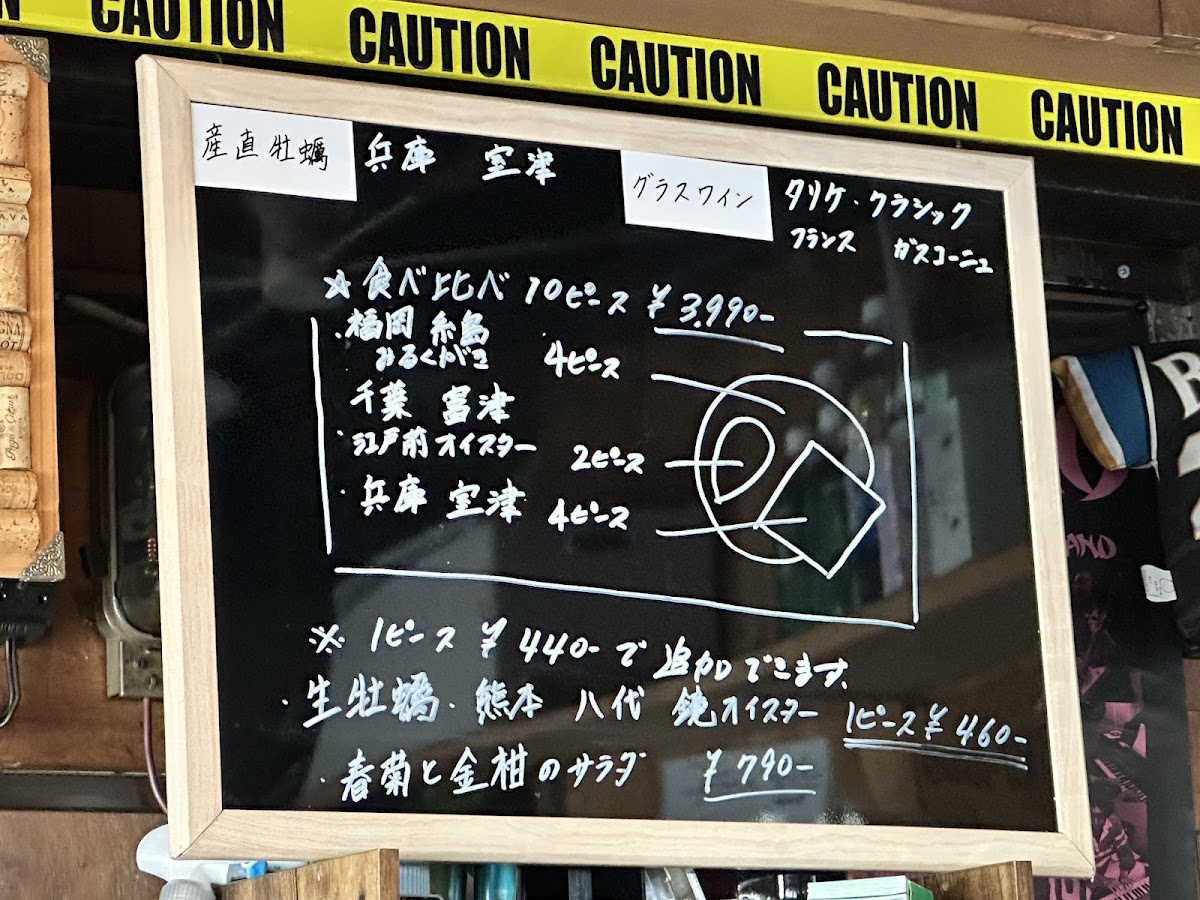 CAUTION CAUTION CAUTION CAUTION CAUTION
産直牡蠣 兵庫 室津
グラスワイン タリケ・クラシック
フランス ガスコーニュ
☆食べ比べ 10ピース ¥3,990-
・福岡 糸島
みるくがき 4ピース
千葉 富津
・江戸前オイスター 2ピース
・兵庫 室津 4ピース
※ 1ピース ¥440-で 追加できます。
・生牡蠣・熊本 八代 鏡オイスター 1ピース¥460-
・春菊と金柑のサラダ ¥790-
AND